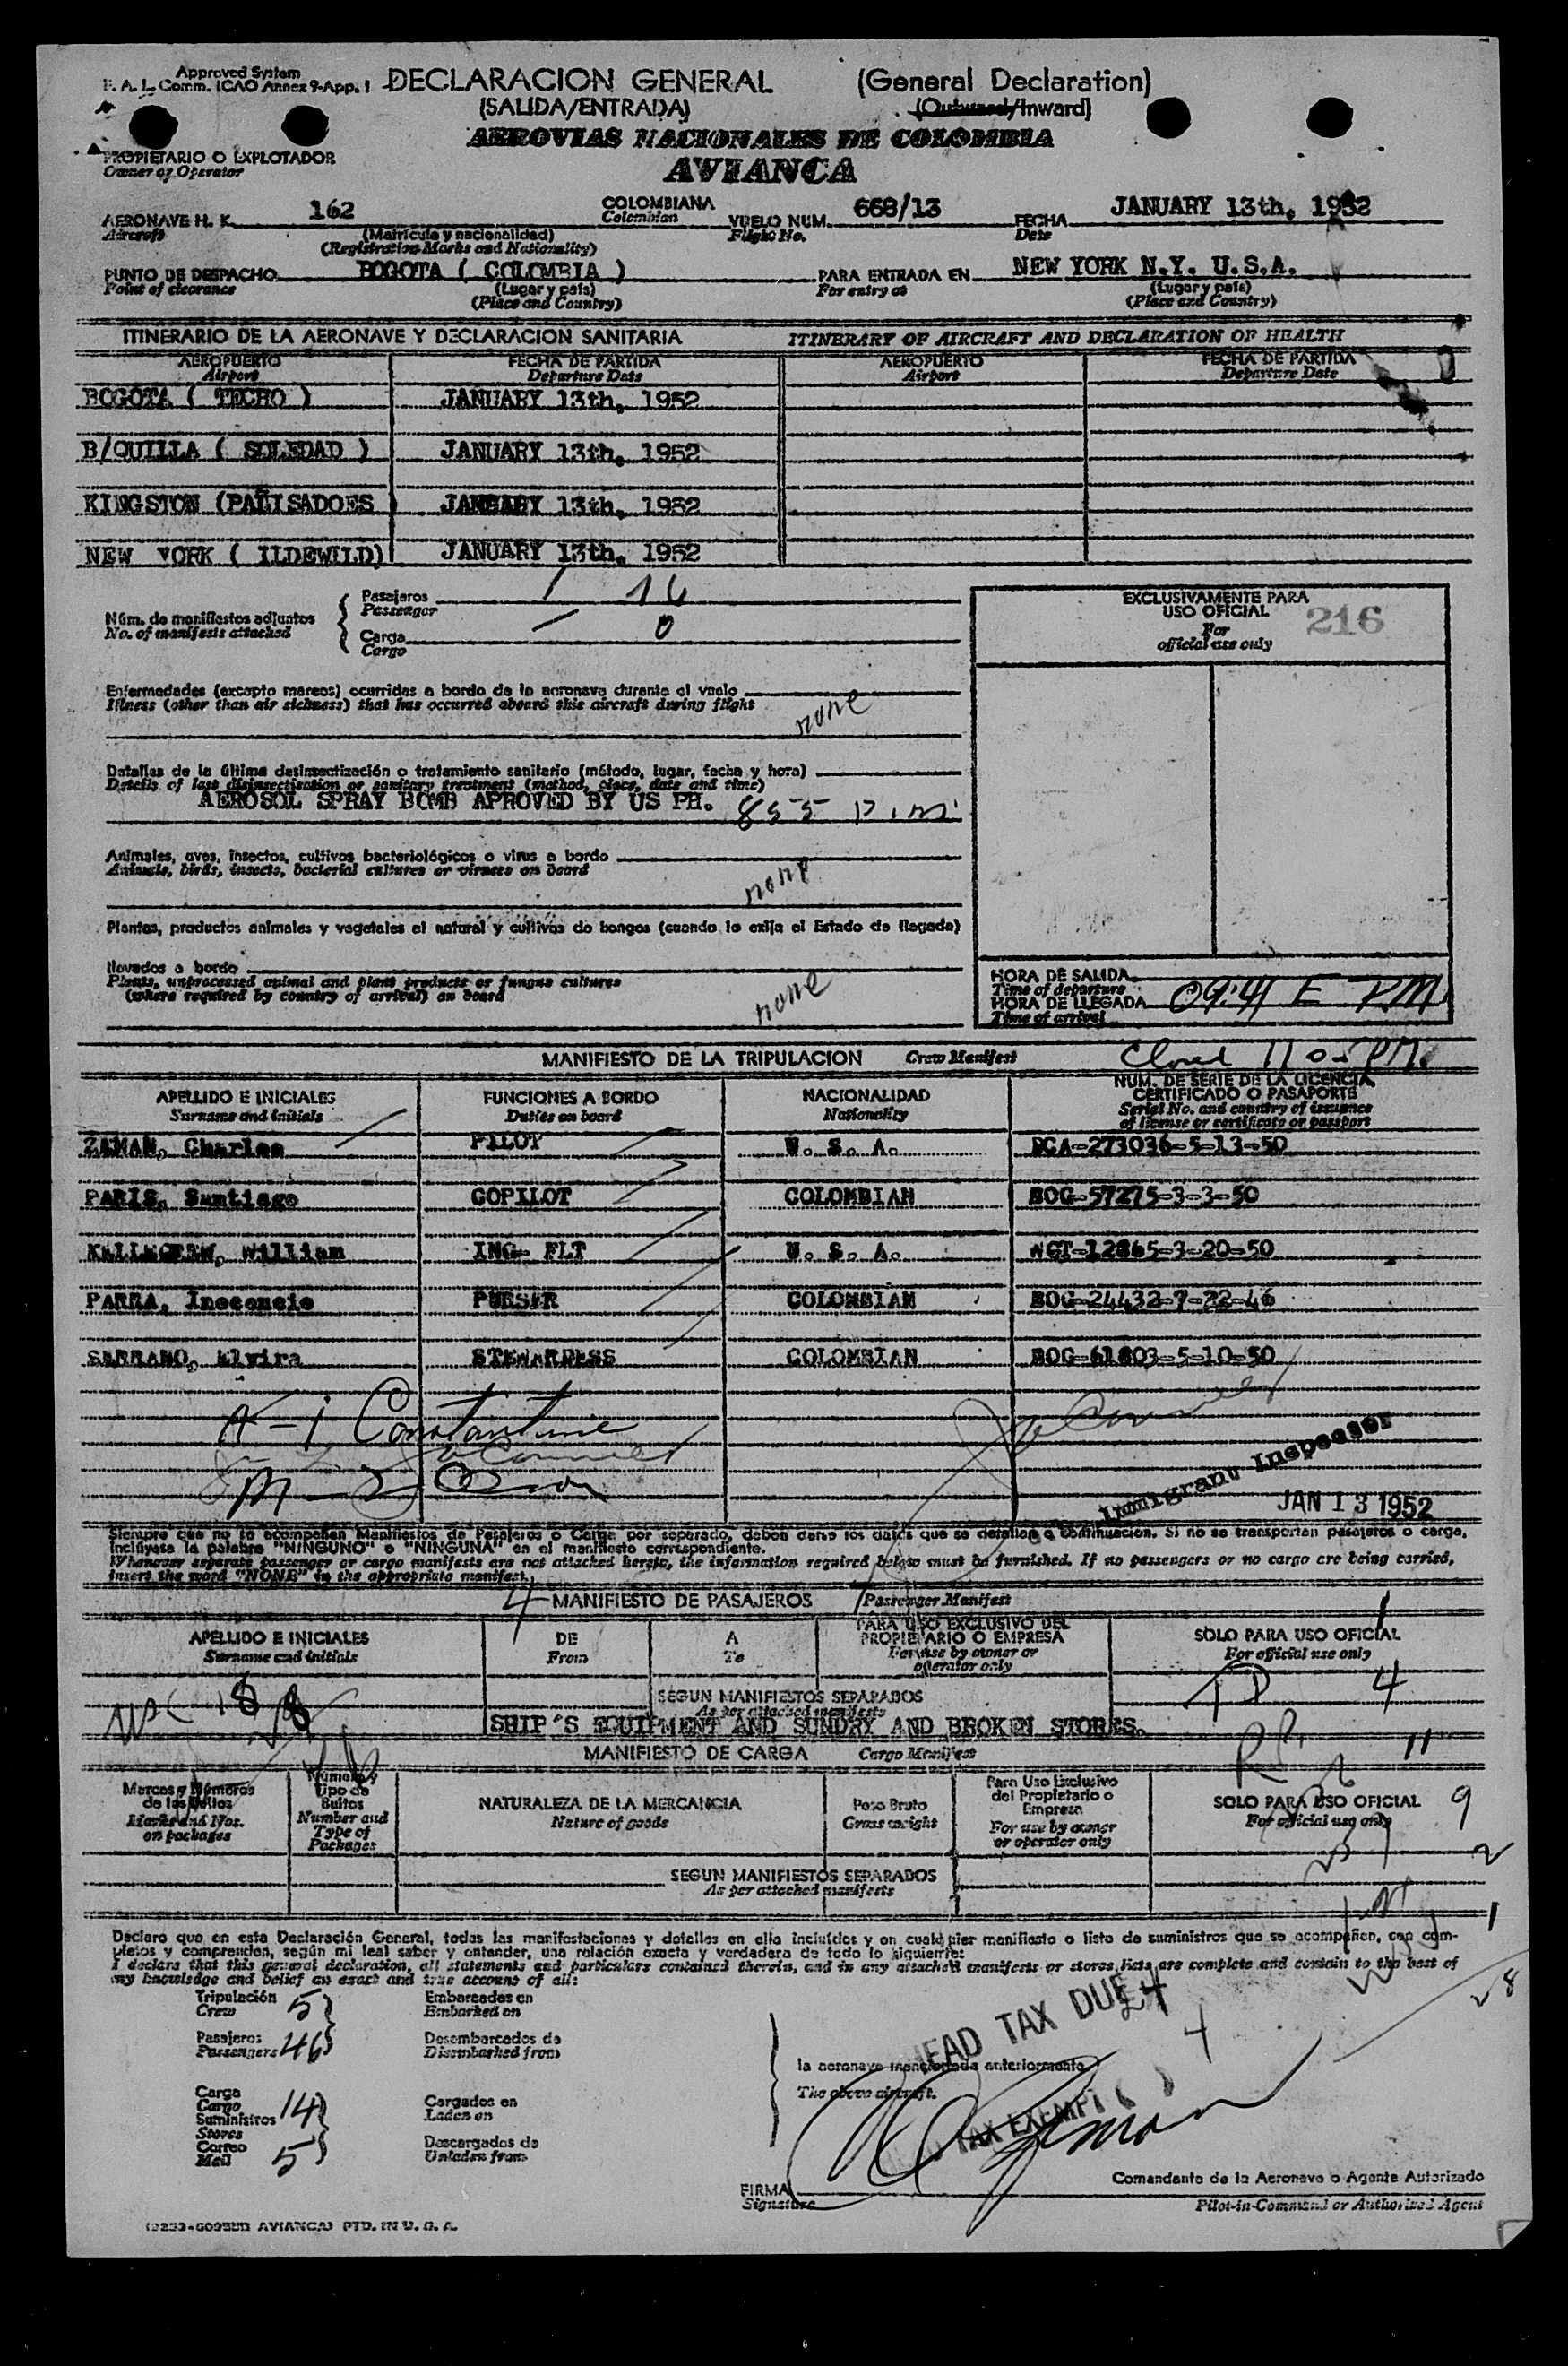 Approved System
F. A. L. Comm. ICAO Annex 9-App. 1
DECLARACION GENERAL (General Declaration)
(SALIDA/ENTRADA) (Outward/Inward)
AEROVIAS NACIONALES DE COLOMBIA
AVIANCA
PROPIETARIO O EXPLOTADOR
Owner or Operator
AERONAVE H. K. 162 COLOMBIANA VUELO NUM. 668/13 FECHA JANUARY 13th, 1952
Aircraft (Matrícula y nacionalidad) Colombian Flight No. Date
(Registration Marks and Nationality)
PUNTO DE DESPACHO BOGOTA ( COLOMBIA ) PARA ENTRADA EN NEW YORK N.Y. U.S.A.
Point of clearance (Lugar y país) For entry at (Lugar y país)
(Place and Country) (Place and Country)
ITINERARIO DE LA AERONAVE Y DECLARACION SANITARIA ITINERARY OF AIRCRAFT AND DECLARATION OF HEALTH
AEROPUERTO FECHA DE PARTIDA AEROPUERTO FECHA DE PARTIDA
Airport Departure Date Airport Departure Date
BOGOTA ( TECHO ) JANUARY 13th, 1952
B/QUILLA ( SOLEDAD ) JANUARY 13th, 1952
KINGSTON (PALISADOES ) JANUARY 13th, 1952
NEW YORK ( ILDEWILD) JANUARY 13th, 1952
Núm. de manifiestos adjuntos
No. of manifests attached
Pasajeros
Passenger
Carga 0
Cargo
EXCLUSIVAMENTE PARA
USO OFICIAL
For
official use only
216
Enfermedades (excepto mareos) ocurridas a bordo de la aeronave durante el vuelo
Illness (other than air sickness) that has occurred aboard this aircraft during flight
none
Detalles de la última desinsectización o tratamiento sanitario (método, lugar, fecha y hora)
Details of last disinsectization or sanitary treatment (method, place, date and time)
AEROSOL SPRAY BOMB APROVED BY US PH. 855 P.M.
Animales, aves, insectos, cultivos bacteriológicos o virus a bordo
Animals, birds, insects, bacterial cultures or viruses on board
none
Plantas, productos animales y vegetales al natural y cultivos de hongos (cuando lo exija el Estado de llegada)
llevados a bordo
Plants, unprocessed animal and plant products or fungus cultures
(where required by country of arrival) on board
none
HORA DE SALIDA
Time of departure
HORA DE LLEGADA 09:41 E PM
Time of arrival
MANIFIESTO DE LA TRIPULACION Crew Manifest Closed 11 05 PM.
APELLIDO E INICIALES FUNCIONES A BORDO NACIONALIDAD NUM. DE SERIE DE LA LICENCIA, CERTIFICADO O PASAPORTE
Surname and initials Duties on board Nationality Serial No. and country of issuance of license or certificate or passport
ZAMAN, Charles PILOT U. S. A. DCA-273036-5-13-50
PARIS, Santiago COPILOT COLOMBIAN BOG-57275-3-3-50
William ING- FLT U. S. A. WGT-12865-3-20-50
PARRA, Inocencio PURSER COLOMBIAN BOG-24432-7-22-46
SERRANO, Elvira STEWARDESS COLOMBIAN BOG-61803-5-10-50
Constantine
Immigrant Inspector
JAN 13 1952
Siempre que no se acompañen Manifiestos de Pasajeros o Carga por separado, deben darse los datos que se detallan a continuación. Si no se transportan pasajeros o carga,
inclúyase la palabra "NINGUNO" o "NINGUNA" en el manifiesto correspondiente.
Whenever separate passenger or cargo manifests are not attached hereto, the information required below must be furnished. If no passengers or no cargo are being carried,
insert the word "NONE" in the appropriate manifest.
4 MANIFIESTO DE PASAJEROS Passenger Manifest 1
APELLIDO E INICIALES DE A PARA USO EXCLUSIVO DEL PROPIETARIO O EMPRESA SOLO PARA USO OFICIAL
Surname and initials From To For use by owner or operator only For official use only
4
SEGUN MANIFIESTOS SEPARADOS
As per attached manifests
SHIP'S EQUIPMENT AND SUNDRY AND BROKEN STORES.
11
MANIFIESTO DE CARGA Cargo Manifest
Marcas y Números de los Bultos
Marks and Nos. on packages
Número y Tipo de Bultos
Number and Type of Packages
NATURALEZA DE LA MERCANCIA
Nature of goods
Peso Bruto
Gross weight
Para Uso Exclusivo del Propietario o Empresa
For use by owner or operator only
SOLO PARA USO OFICIAL 9
For official use only
2
SEGUN MANIFIESTOS SEPARADOS
As per attached manifests
1
Declaro que en esta Declaración General, todas las manifestaciones y detalles en ella incluídos y en cualquier manifiesto o lista de suministros que se acompañen, son com-
pletos y comprenden, según mi leal saber y entender, una relación exacta y verdadera de todo lo siguiente:
I declare that this general declaration, all statements and particulars contained therein, and in any attached manifests or stores lists are complete and contain to the best of
my knowledge and belief an exact and true account of all:
Tripulación 5 Embarcados en
Crew Embarked on
Pasajeros 46 Desembarcados de
Passengers Disembarked from
la aeronave mencionada anteriormente
The above aircraft.
Carga
Cargo 14 Cargados en
Suministros Laden on
Stores
Correo 5 Descargados de
Mail Unladen from
HEAD TAX DUE 4
4
8
TAX EXEMPT ( )
FIRMA
Signature
Comandante de la Aeronave o Agente Autorizado
Pilot-in-Command or Authorized Agent
AVIANCA) PTD. IN U. S. A.